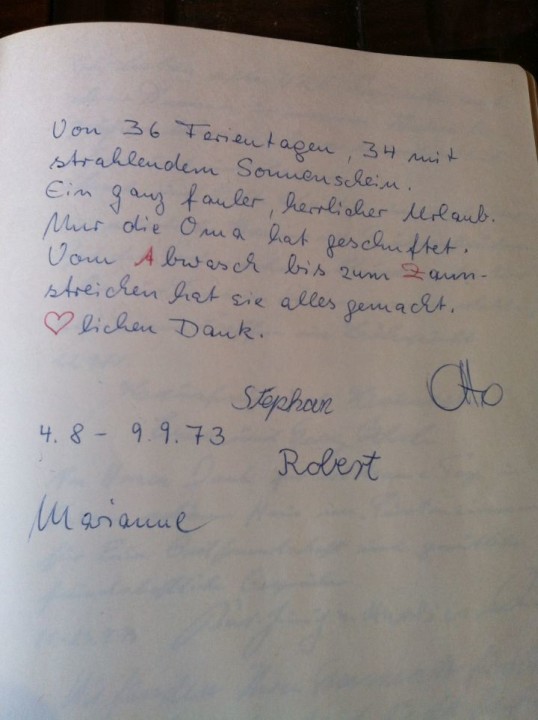 Von 36 Ferientagen, 34 mit
strahlendem Sonnenschein.
Ein ganz fauler, herrlicher Urlaub.
Nur die Oma hat geschuftet.
Vom Abwasch bis zum Zaun-
streichen hat sie alles gemacht.
♡lichen Dank.
Stephan Otto
4.8 - 9.9.73
Robert
Marianne